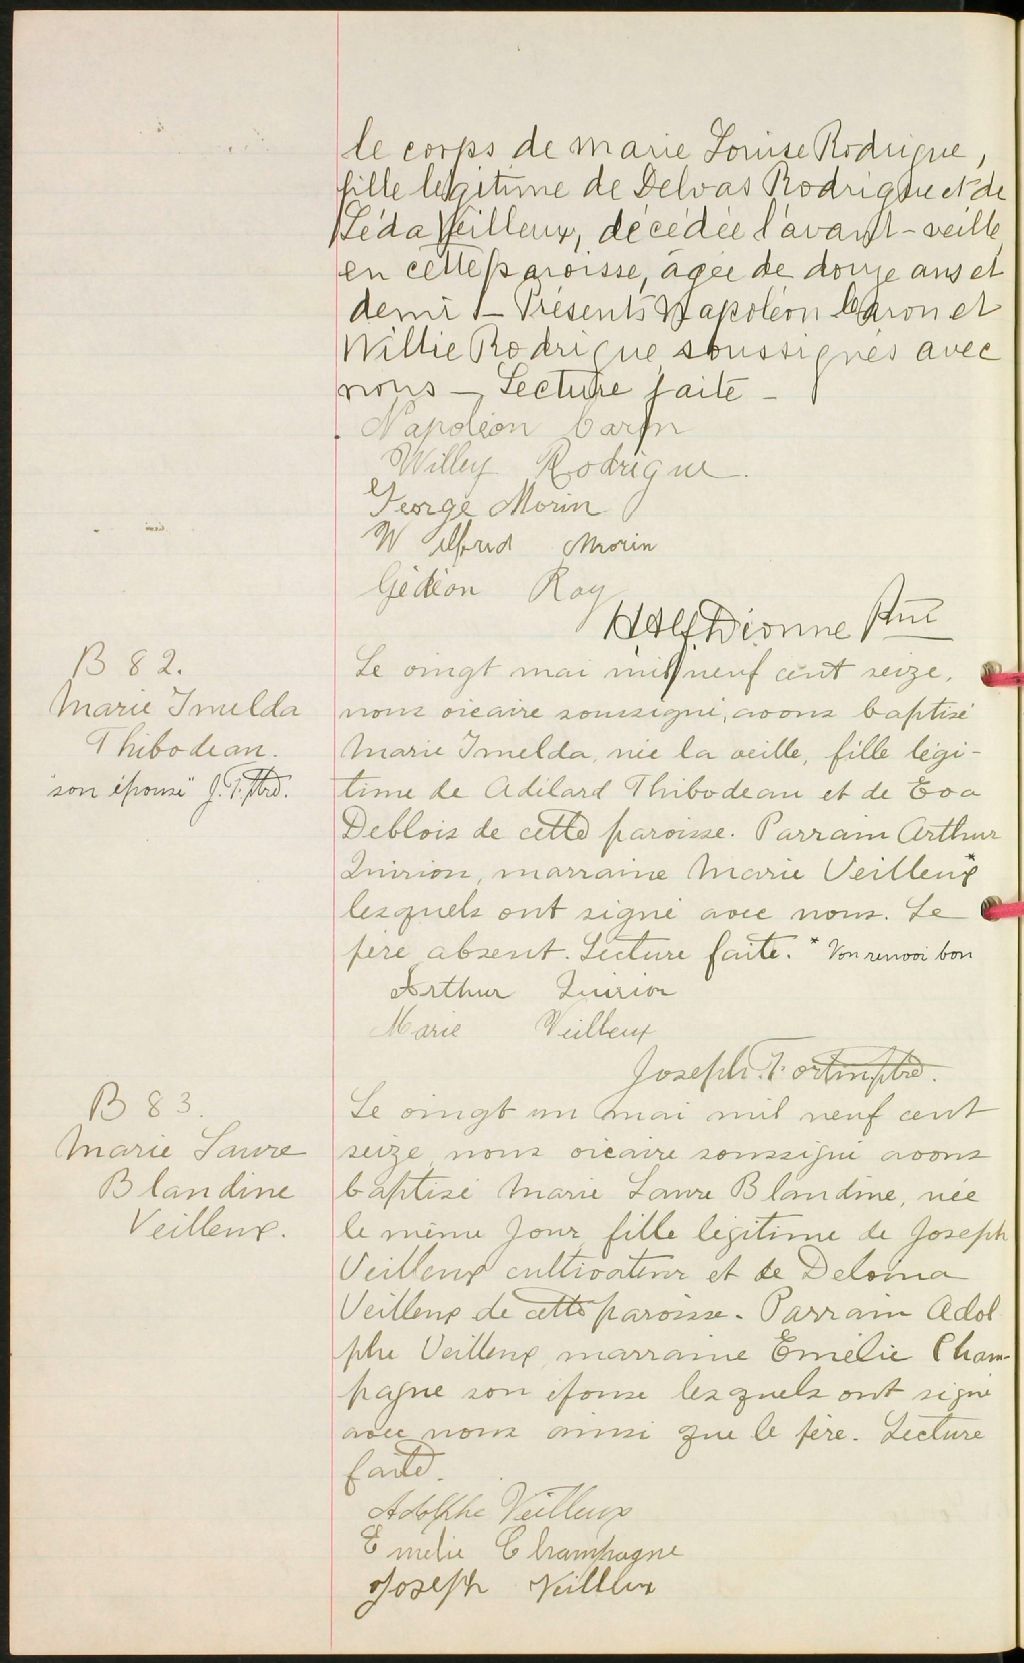 le corps de marie Louise Rodrigue,
fille légitime de Delvas Rodrigue et de
Léda Veilleux, décédée l'avant-veille
en cette paroisse, âgée de douze ans et
demi — Présents Napoléon Caron et
Willie Rodrigue soussignés avec
nous — Lecture faite —
Napoléon Caron
Willey Rodrigue.
George Morin
Wilfrid Morin
Gédéon Roy
H Alf Dionne Ptre
B 82.
Marie Imelda
Thibodeau.
"son épouse" J. F. ptre.
Le vingt mai mil neuf cent seize,
nous vicaire soussigné, avons baptisé
Marie Imelda, née la veille, fille légi-
time de Adélard Thibodeau et de Eva
Deblois de cette paroisse. Parrain Arthur
Quirion, marraine Marie Veilleux*
lesquels ont signé avec nous. Le
père absent. Lecture faite. * Un renvoi bon
Arthur Quirion
Marie Veilleux
Joseph. Fortin, ptre.
B 83.
Marie Laure
Blandine
Veilleux.
Le vingt un mai mil neuf cent
seize, nous vicaire soussigné avons
baptisé Marie Laure Blandine, née
le même jour, fille légitime de Joseph
Veilleux cultivateur et de Deloma
Veilleux de cette paroisse. Parrain Adol
phe Veilleux, marraine Emélie Cham-
pagne son épouse lesquels ont signé
avec nous ainsi que le père. Lecture
faite.
Adolphe Veilleux
Emélie Champagne
Joseph Veilleux